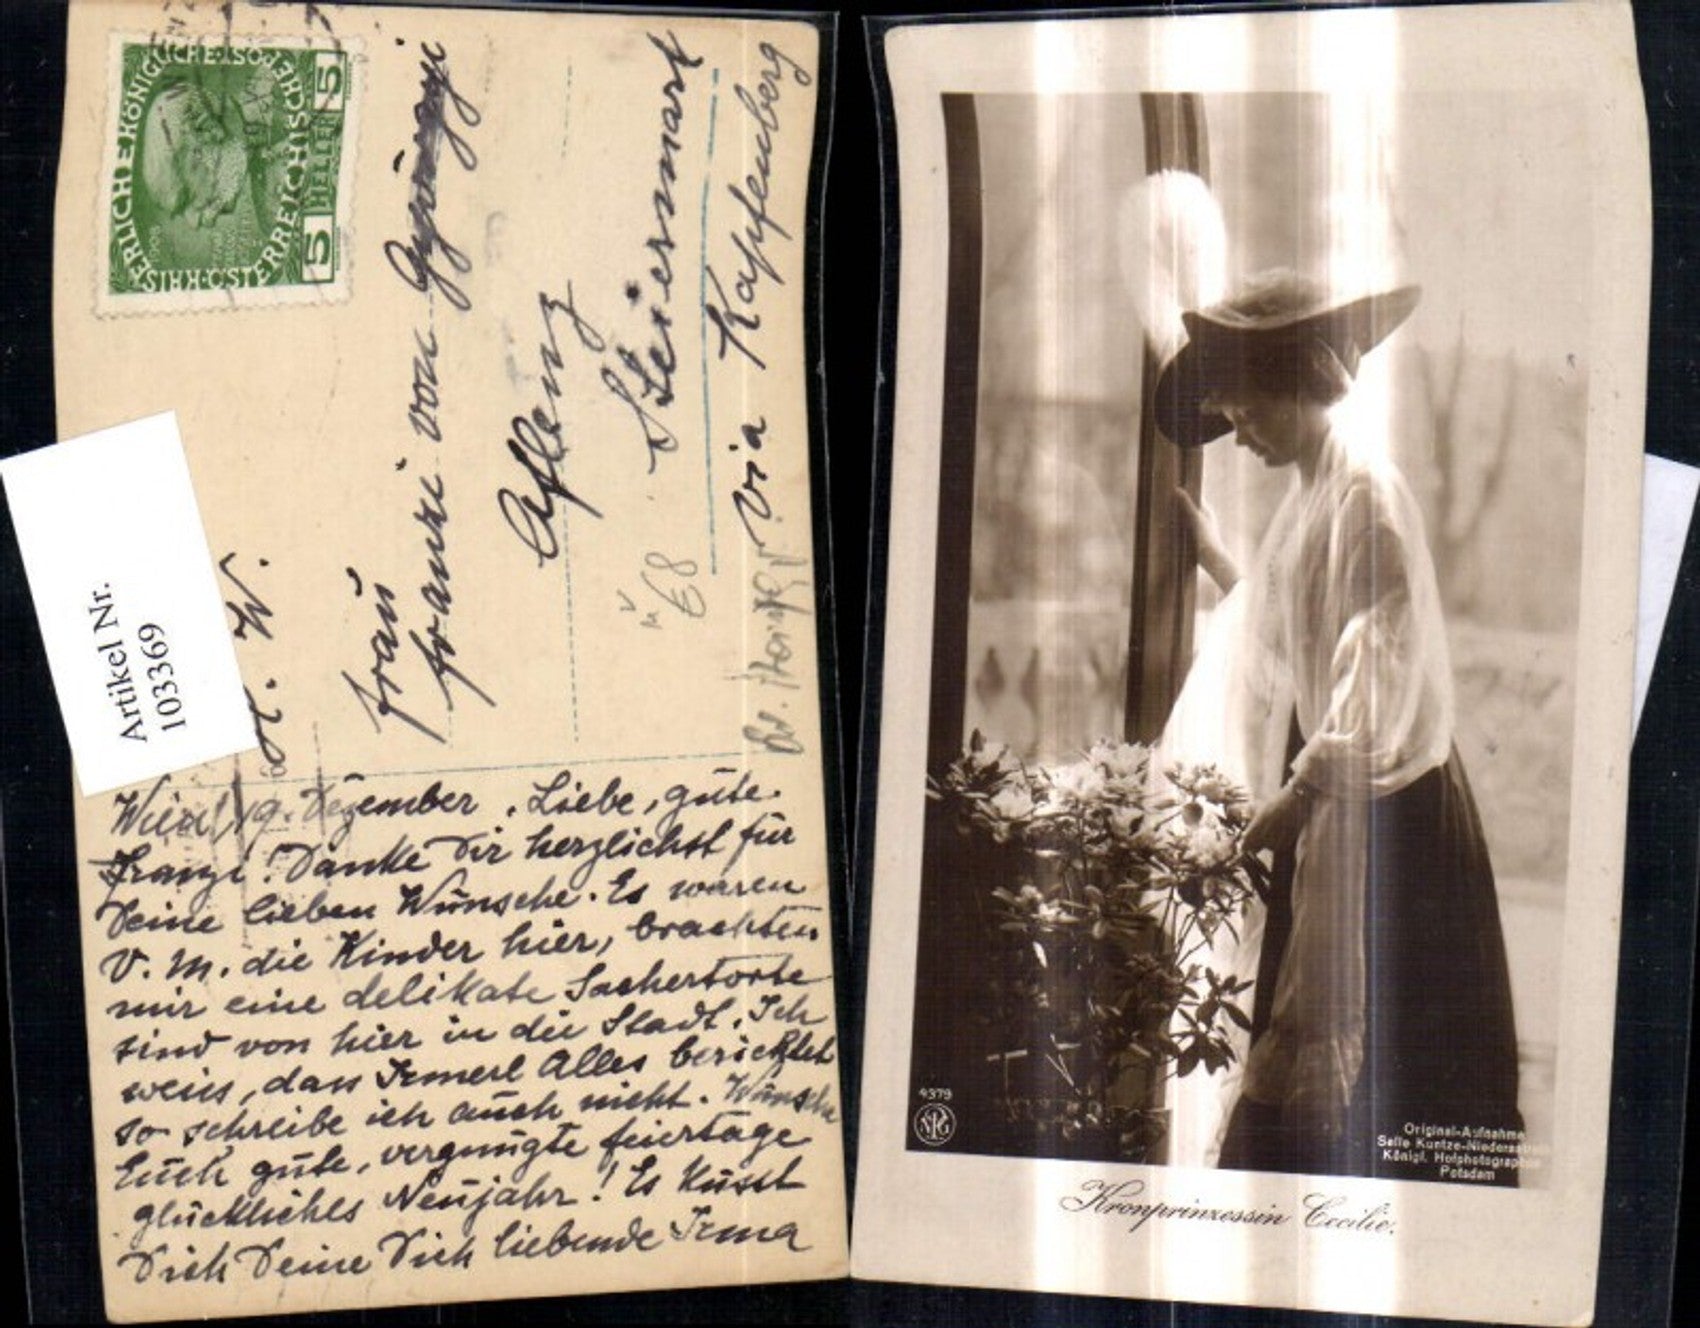 KAISERLICHE KÖNIGLICHE ÖSTERREICHISCHE POST
5 HELLER 5
H. W.
Frau
Franzi von
Aflenz
Steiermark
via Kapfenberg
€8
Artikel Nr.
103369
Wien, 19. Dezember. Liebe, gute
Franzi! Danke Dir herzlichst für
Deine lieben Wünsche. Es waren
V. M. die Kinder hier, brachten
mir eine delikate Sachertorte
sind von hier in die Stadt. Ich
weiss, dass Irmerl Alles berichtet
so schreibe ich auch nicht. Wünsche
Euch gute, vergnügte Feiertage
glückliches Neujahr! Es küsst
Dich Deine Dich liebende Irma
4379
NPG
Original-Aufnahme
Selle Kuntze-Niederastroth
Königl. Hofphotographen
Potsdam
Kronprinzessin Cecilie.